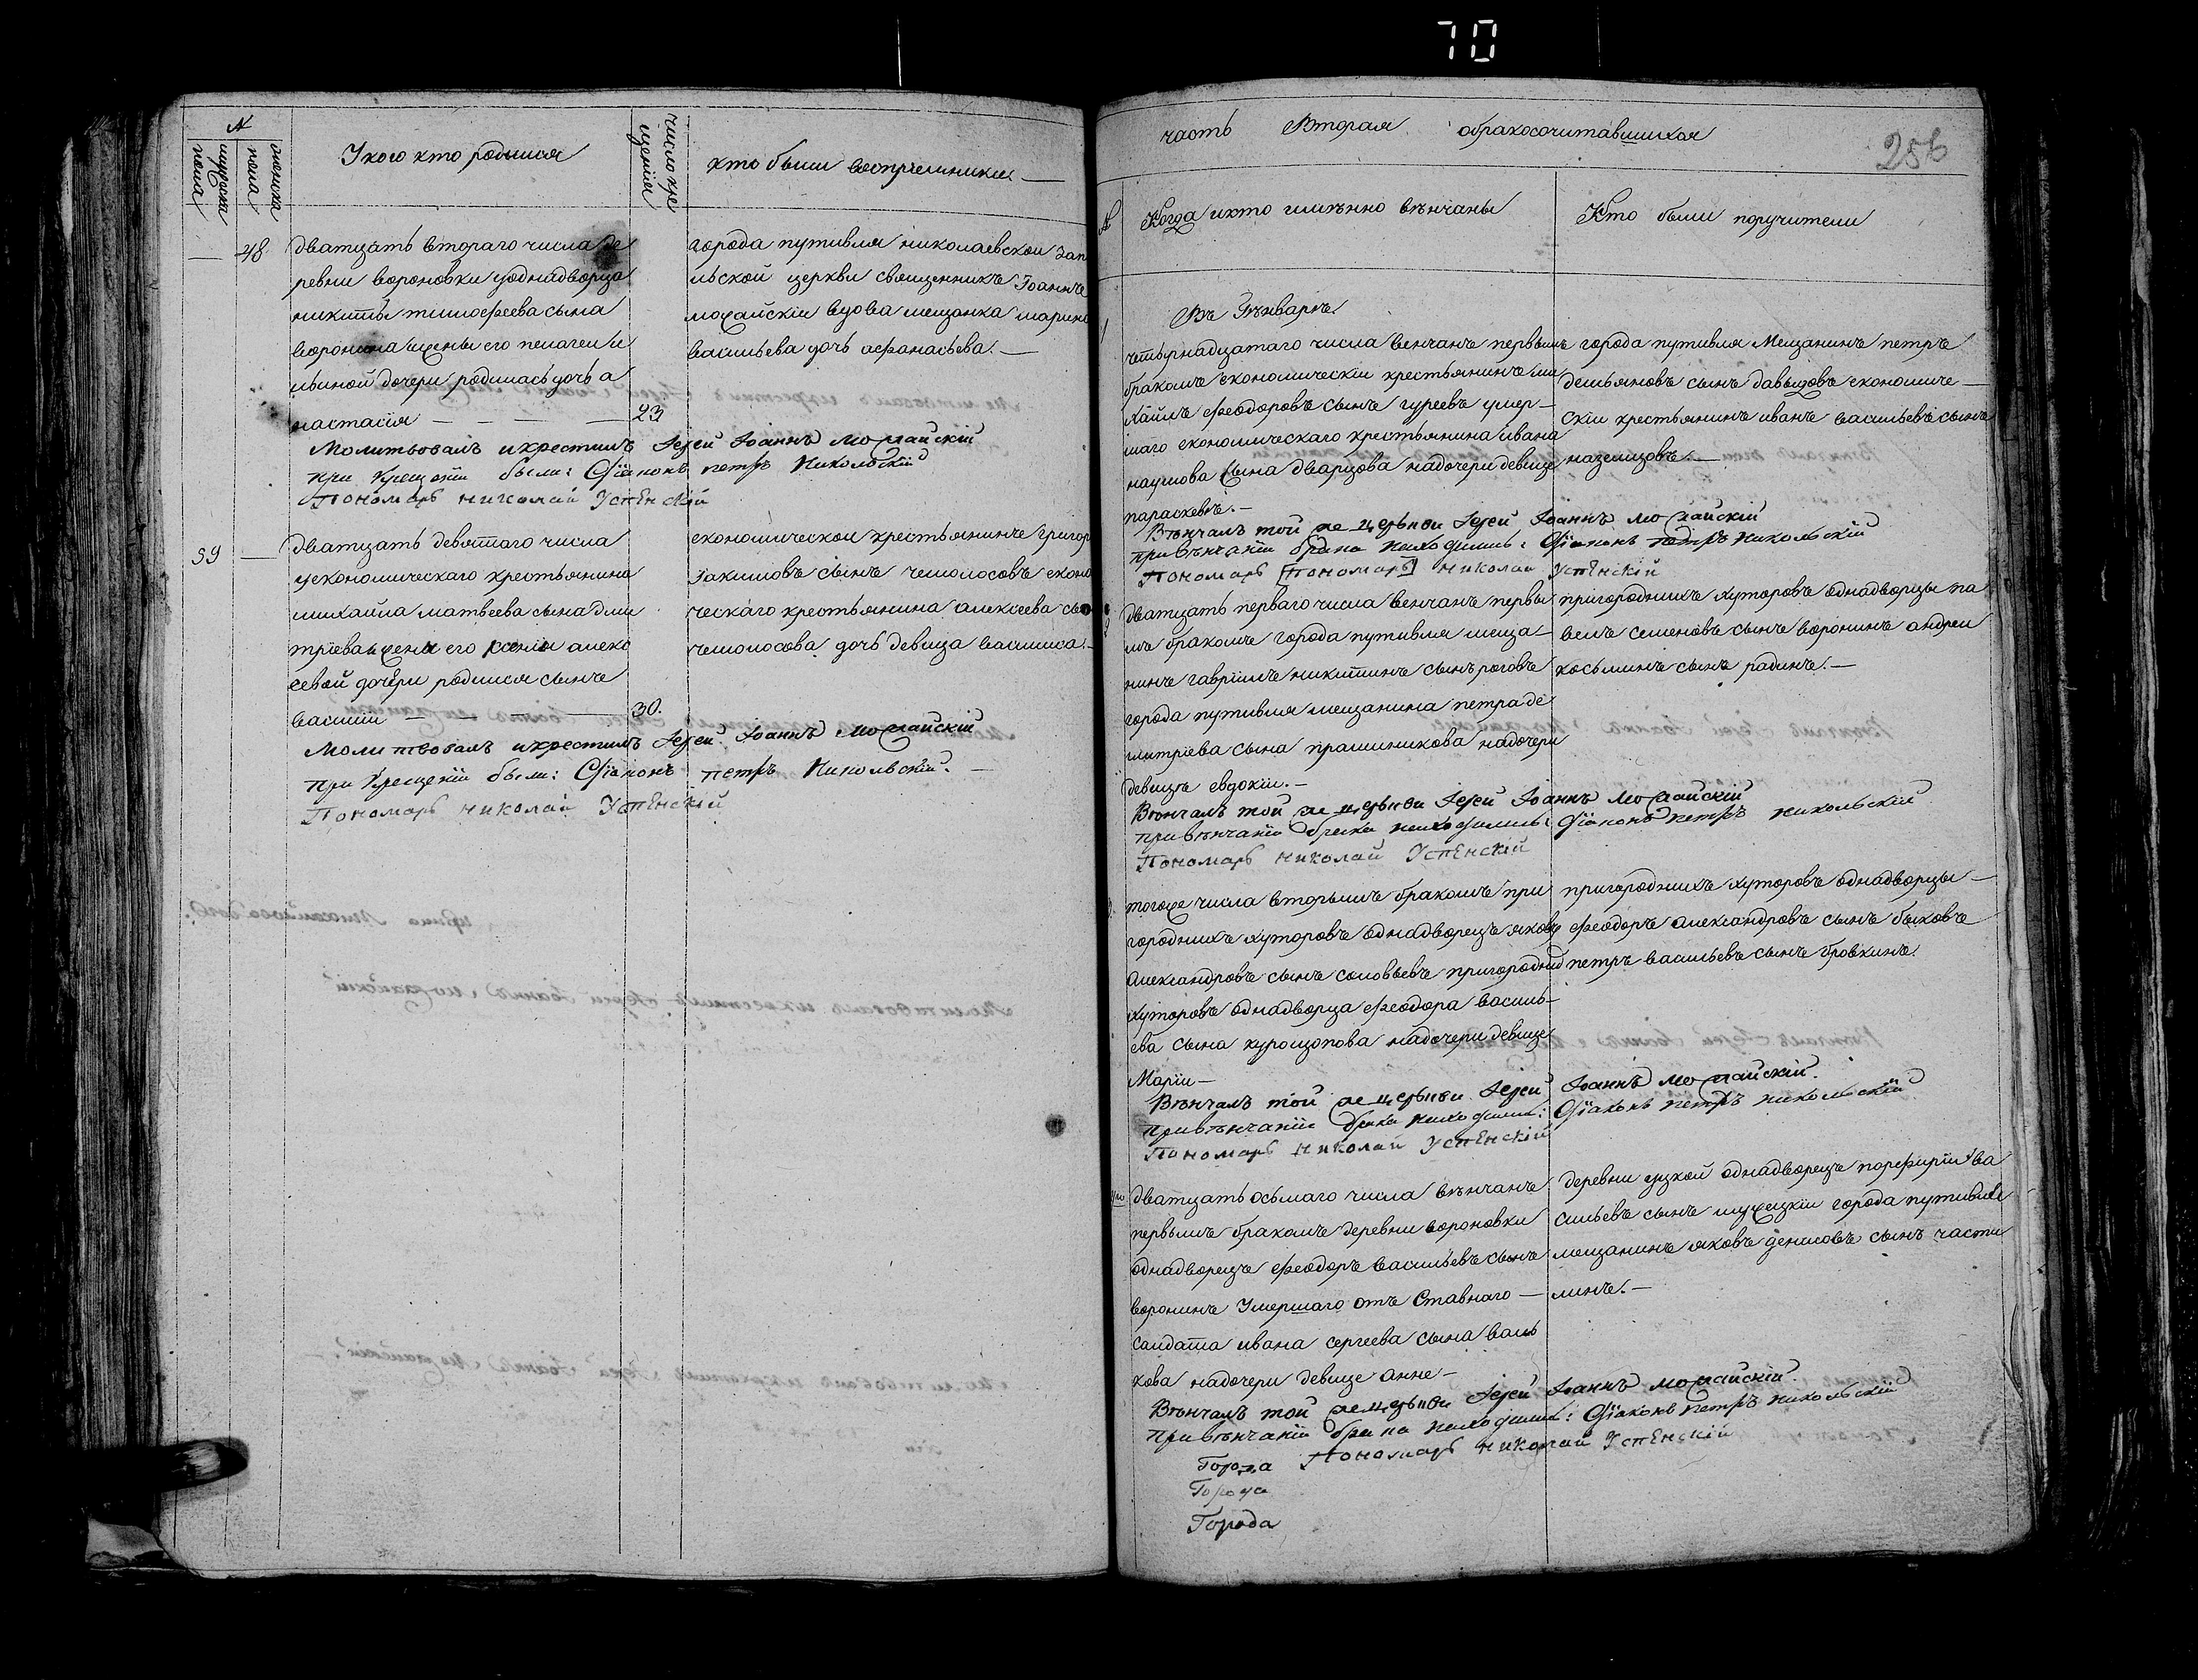 70
№
мужеска пола
женска пола
У кого кто родился
число крещенія
кто были воспріемники
48
дватцать втораго числа де
ревни вороновки уоднадворца
никиты тимофеева сына
воронина жены его пелагеи и
льиной дочери родилась дочь а
настасія
23
города путивля николаевской
льской церкви священникъ Іоаннъ
можайскіи вдова мещанка марина
васильева дочь афанасьева.
Молитвовалъ икрестилъ Іерей Іоаннъ Можайскій
при Крещеніи были: Діаконъ петръ Никольскій
Пономарь николай Успенскій
59
дватцать девятаго числа
уекономическаго крестьянина
михаила матвеева сына дми
тріева жены его ксеніи алекс
севой дочери родился сынъ
василіи
30.
економическои крестьянинъ григор
Іакимовъ сынъ чемоносовъ еконо
ческаго крестьянина алексеева
чемоносова дочь девица василиса.
Молитвовалъ икрестилъ Іерей Іоаннъ Можайскій
при Крещеніи были: Діаконъ петръ Никольскій.
Пономарь николай Успенскій
часть Вторая обракосочитавшихся
256
№
Когда икто имянно вѣнчаны
Кто были поручители
Въ Январѣ
1
четырнадцатаго числа венчанъ первымъ
бракомъ економическіи крестьянинъ ми
хаилъ феодоровъ сынъ гуреевъ умер-
шаго економическаго крестьянина ивана
наумова сына дварцова надочери девице
параскевѣ.
города путивля Мещанинъ петръ
демьяновъ сынъ давыдовъ економиче
скіи крестьянинъ иванъ васильевъ сынъ
наземцовъ.
Вѣнчалъ той же церькви Іерей Іоаннъ Можайскій
привѣнчаніи брака находились: Діаконъ петръ Никольскій
Пономарь [пономарь] николай Успенскій
2
дватцать перваго числа венчанъ первы
мъ бракомъ города путивля меща
нинъ гавріилъ никитинъ сынъ роговъ
города путивля мещанина петра де
митріева сына прашникова надочери
девицѣ евдокіи.
пригороднихъ хуторовъ однадворцы па
велъ семеновъ сынъ воронинъ андреи
косьминъ сынъ радинъ.
Вѣнчалъ той же церькви Іерей Іоаннъ Можайскій
привѣнчаніи брака находились: Діаконъ петръ никольскій
Пономарь николай Успенскій
тогоже числа вторымъ бракомъ при
городнихъ хуторовъ однадворецъ яковъ
александровъ сынъ соловьевъ пригородних
хуторовъ однадворца феодора василь
ева сына курощопова надочери девице
Маріи
пригороднихъ хуторовъ однадворцы
феодоръ александровъ сынъ быковъ
петръ васильевъ сынъ бровкинъ.
Вѣнчалъ той же церькви Іерей Іоаннъ Можайскій.
привѣнчаніи брака находились: Діаконъ петръ никольскій
Пономарь николай Успенскій
дватцать осьмаго числа вѣнчанъ
первымъ бракомъ деревни вороновки
однадворецъ феодоръ васильевъ сынъ
воронинъ Умершаго отъ ставнаго
салдата ивана сергеева сына вань
кова надочери девице анне
деревни уцкой однадворецъ порфиріи ва
сильевъ сынъ шужецкіи города путивля
мещанинъ яковъ денисовъ сынъ части
линъ.
Вѣнчалъ той же церькви Іерей Іоаннъ Можайскій.
привѣнчаніи брака находились: Діаконъ петръ никольскій
Пономарь николай Успенскій
Города
Города
Города